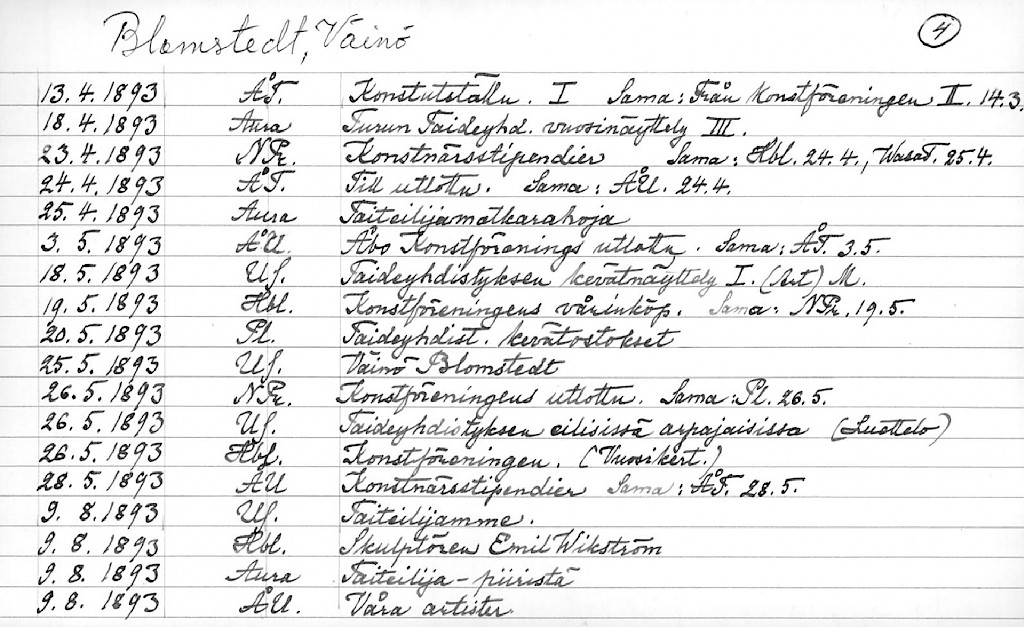 Blomstedt, Väinö 4
13. 4. 1893 ÅT. Konstutställn. I Sama: Från Konstföreningen II. 14.3.
18. 4. 1893 Aura Turun Taideyhd. vuosinäyttely III.
23. 4. 1893 NPr. Konstnärsstipendier Sama: Hbl. 24.4., Wasat. 25.4.
24. 4. 1893 ÅT. Till utlottn. Sama: ÅU. 24.4.
25. 4. 1893 Aura Taiteilijamatkarahoja
3. 5. 1893 ÅU. Åbo Konstförenings utlottn. Sama: ÅT. 3.5.
18. 5. 1893 US. Taideyhdistyksen kevätnäyttely I. (Art) M.
19. 5. 1893 Hbl. Konstföreningens vårinköp. Sama: NPr. 19.5.
20. 5. 1893 Pl. Taideyhdist. kevätostokset
25. 5. 1893 US. Väinö Blomstedt
26. 5. 1893 NPr. Konstföreningens utlottn. Sama: Pl. 26.5.
26. 5. 1893 US. Taideyhdistyksen eilisissä arpajaisissa (Luettelo)
26. 5. 1893 Hbl. Konstföreningen. (Vuosikert.)
28. 5. 1893 ÅU Konstnärsstipendier Sama: ÅT. 28.5.
9. 8. 1893 US. Taiteilijamme.
9. 8. 1893 Hbl. Skulptören Emil Wikström
9. 8. 1893 Aura Taiteilija-piiristä
9. 8. 1893 ÅU. Våra artister